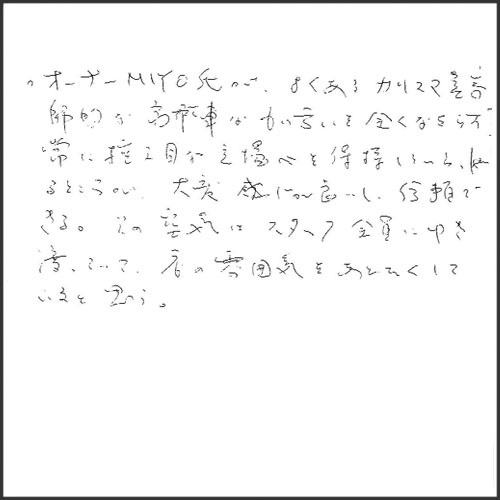 ・オーナーMIYO氏が、よくあるカリスマ美容
師的な高飛車なもの言いを全くなさらず、
常に控え目な立場を保持していらっしゃ
るところが、大変感じが良いし、信頼で
きる。この空気はスタッフ全員にゆき
渡っていて、店の雰囲気をあたたかくして
いると思う。